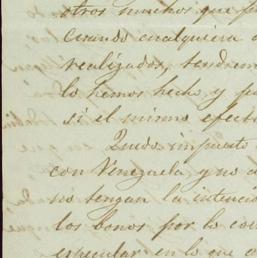 otros muchos que
cerando cualquiera
realizados, tendremos
lo hemos hecho y
si el mismo efecto
Quedo impuesto
con Venezuela y no
no tengan la intenció
los bonos por lo
especular en lo que